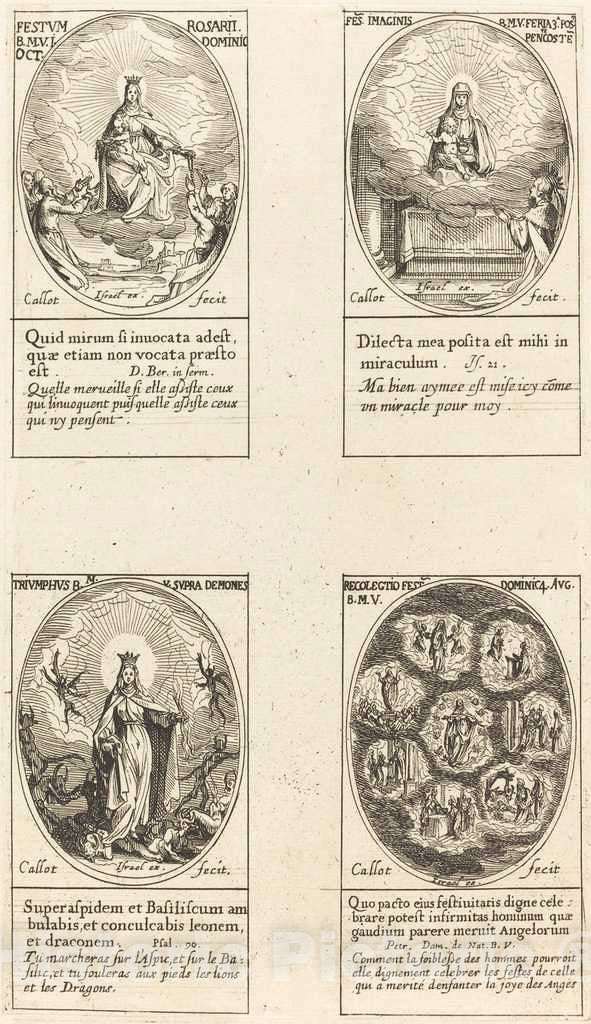 FESTVM ROSARII.
B.M.V. I DOMINIC
OCT.
Callot Israel ex. fecit
Quid mirum si inuocata adest,
quæ etiam non vocata præsto
est. D. Ber. in serm.
Quelle merueille si elle assiste ceux
qui l'inuoquent puis quelle assiste ceux
qui n'y pensent.
FES. IMAGINIS B.M.V. FERIA 3ª POS
PENCOSTĒ
Callot Israel ex. fecit.
Dilecta mea posita est mihi in
miraculum. Js. 21.
Ma bien aymee est mise icy cōme
vn miracle pour moy.
TRIVMPHVS B.M. V. SVPRA DEMONES
Callot Israel ex. fecit.
Super aspidem et Basiliscum am
bulabis, et conculcabis leonem,
et draconem. Psal. 90.
Tu marcheras sur l'Aspic, et sur le Ba-
silic, et tu fouleras aux pieds les lions
et les Dragons.
RECOLEGTIO FEST. DOMINICA 4. AVG.
B.M.V.
Callot Israel ex. fecit
Quo pacto eius festiuitatis digne cele-
brare potest infirmitas hominum quæ
gaudium parere meruit Angelorum
Petr. Dam. de Nat. B.V.
Comment la foiblesse des hommes pourroit
elle dignement celebrer les festes de celle
qui a merité denfanter la joye des Anges